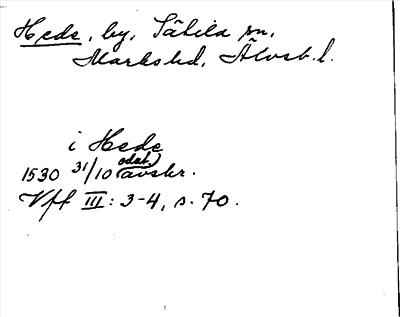 Hede, by, Sätila sn,
Marks hd, Älvsb. l.
i Hede
1530 31/10 (odat.) avskr.
Vff III: 3-4, s. 70.